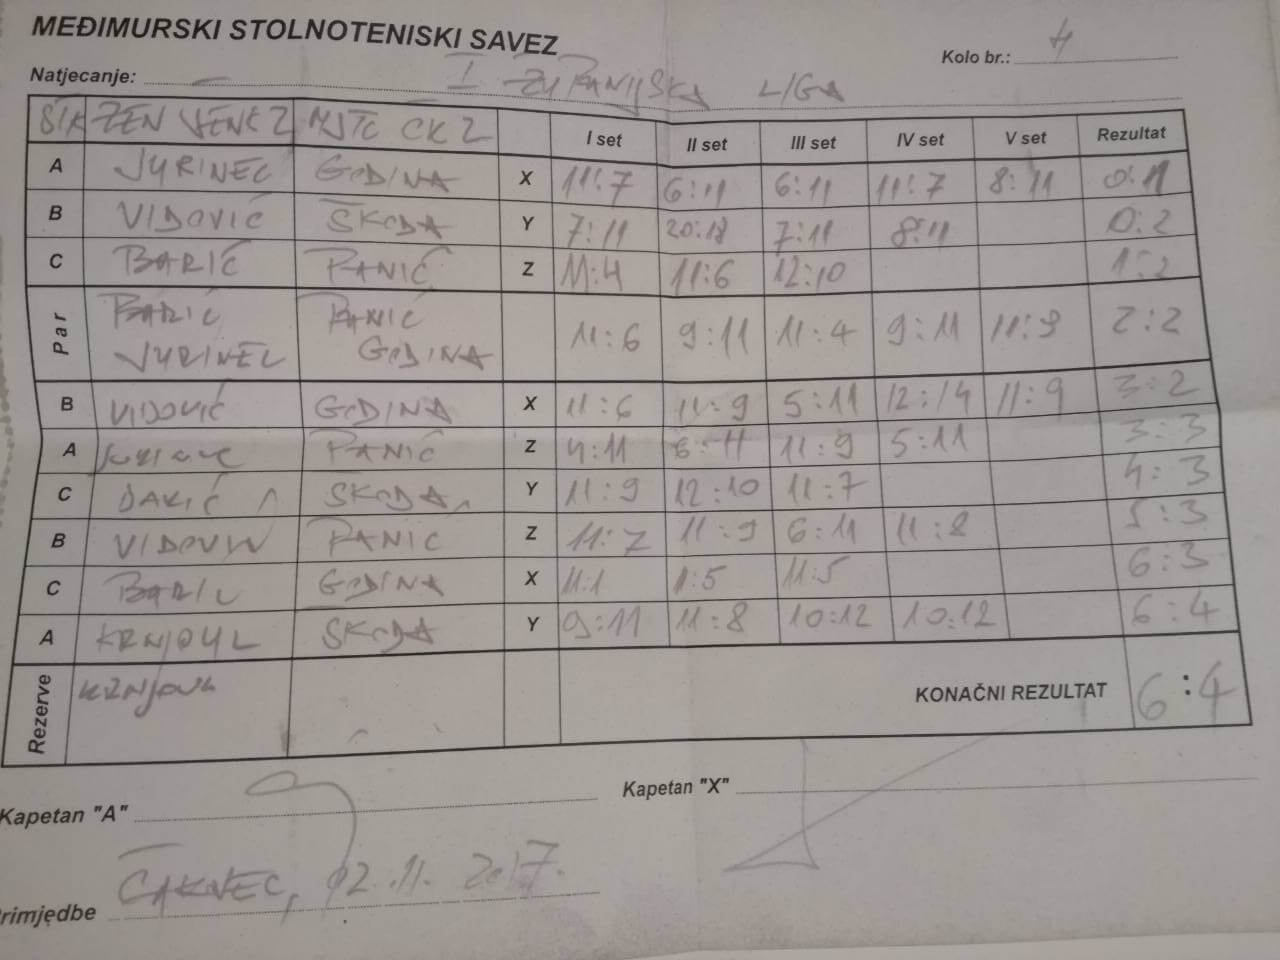 MEĐIMURSKI STOLNOTENISKI SAVEZ
Kolo br.: 4
Natjecanje: I ŽUPANIJSKA LIGA
MSTC ČK 2 I set II set III set IV set V set Rezultat
A JURINEC GODINA X 11:7 6:11 6:11 11:7 8:11 0:1
B VIDOVIĆ ŠKODA Y 7:11 20:18 7:11 8:11 0:2
C BARIĆ PANIĆ Z 11:4 11:6 12:10 1:2
Par BARIĆ PANIĆ 11:6 9:11 11:4 9:11 11:9 2:2
JURINEC GODINA
B VIDOVIĆ GODINA X 11:6 11:9 5:11 12:14 11:9 3:2
A PANIĆ Z 4:11 6:11 11:9 5:11 3:3
C BARIĆ ŠKODA Y 11:9 12:10 11:7 4:3
B VIDOVIĆ PANIĆ Z 11:7 11:9 6:11 11:8 5:3
C BARIĆ GODINA X 11:1 11:5 11:5 6:3
A ŠKODA Y 9:11 11:8 10:12 10:12 6:4
Rezerve KONAČNI REZULTAT 6:4
Kapetan "A" Kapetan "X"
ČAKOVEC, 02.11.2017.
Primjedbe